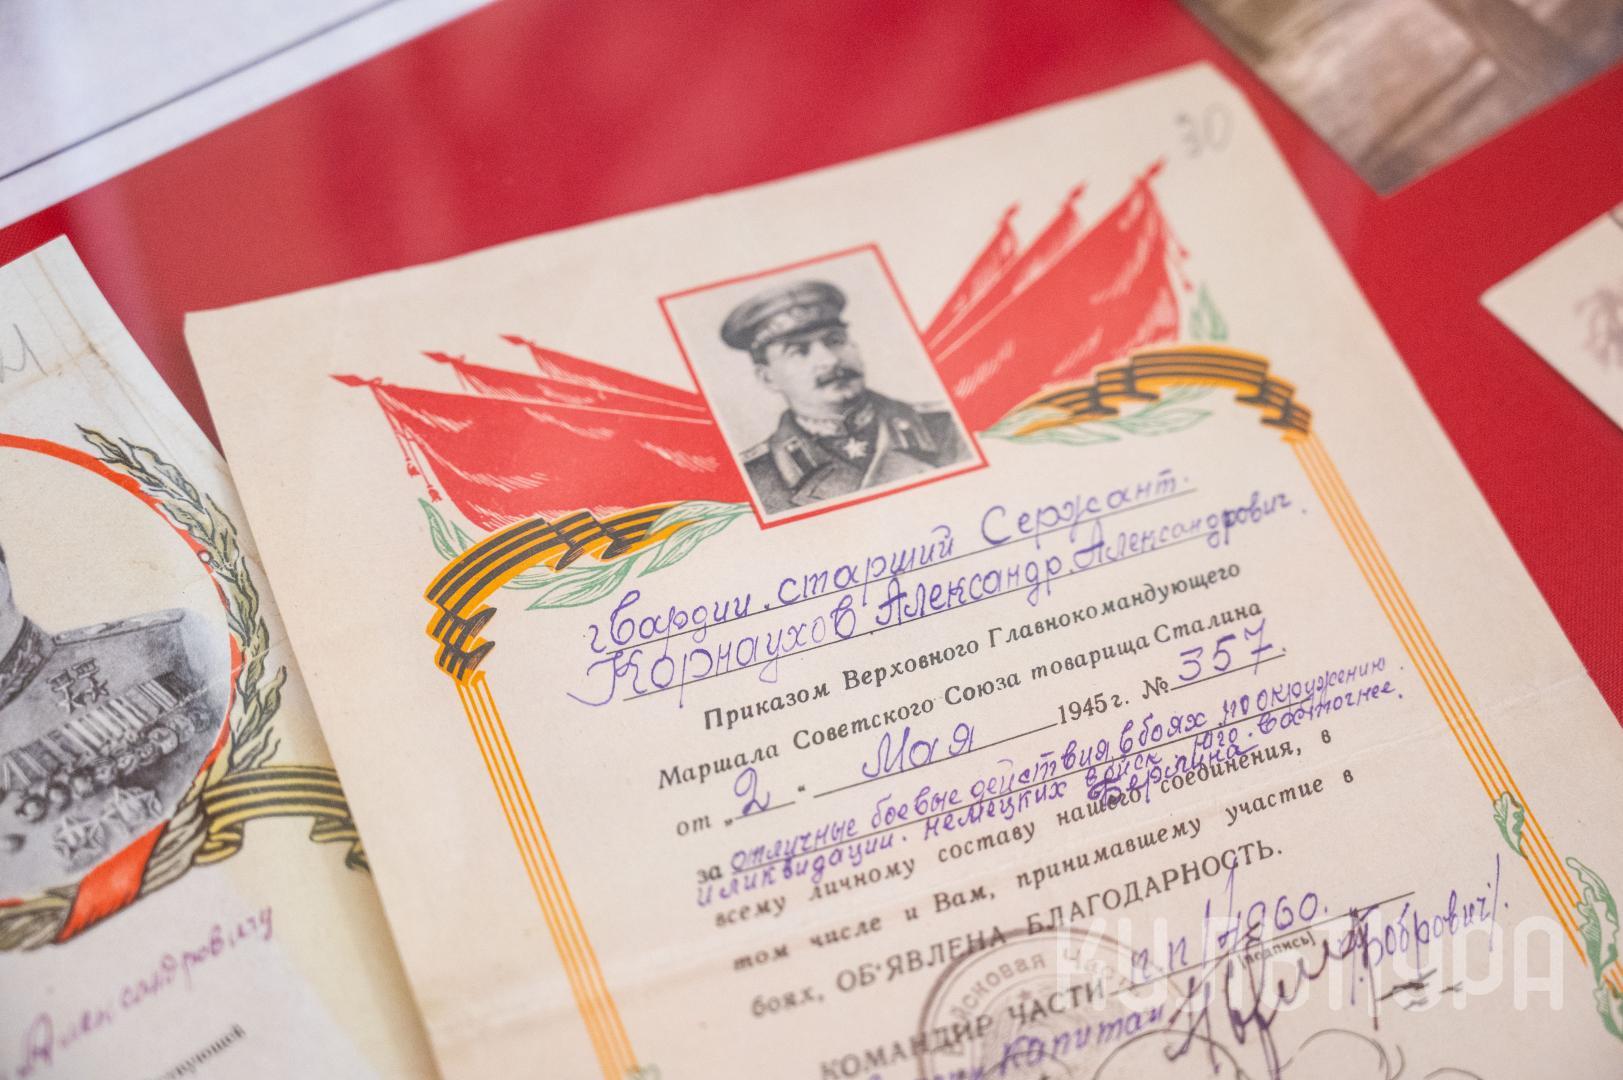 30
гвардии старший Сержант.
Корнаухов Александр Александрович.
Приказом Верховного Главнокомандующего
Маршала Советского Союза товарища Сталина
от „2“ Мая 1945 г. № 357.
за отличные боевые действия в боях по окружению
и ликвидации немецких войск юго-восточнее
Берлина
всему личному составу нашего соединения, в
том числе и Вам, принимавшему участие в
боях, ОБ'ЯВЛЕНА БЛАГОДАРНОСТЬ.
КОМАНДИР ЧАСТИ п.п.
[подпись]
капитан /Бобрович/.
Александровичу
КУЛЬТУРА